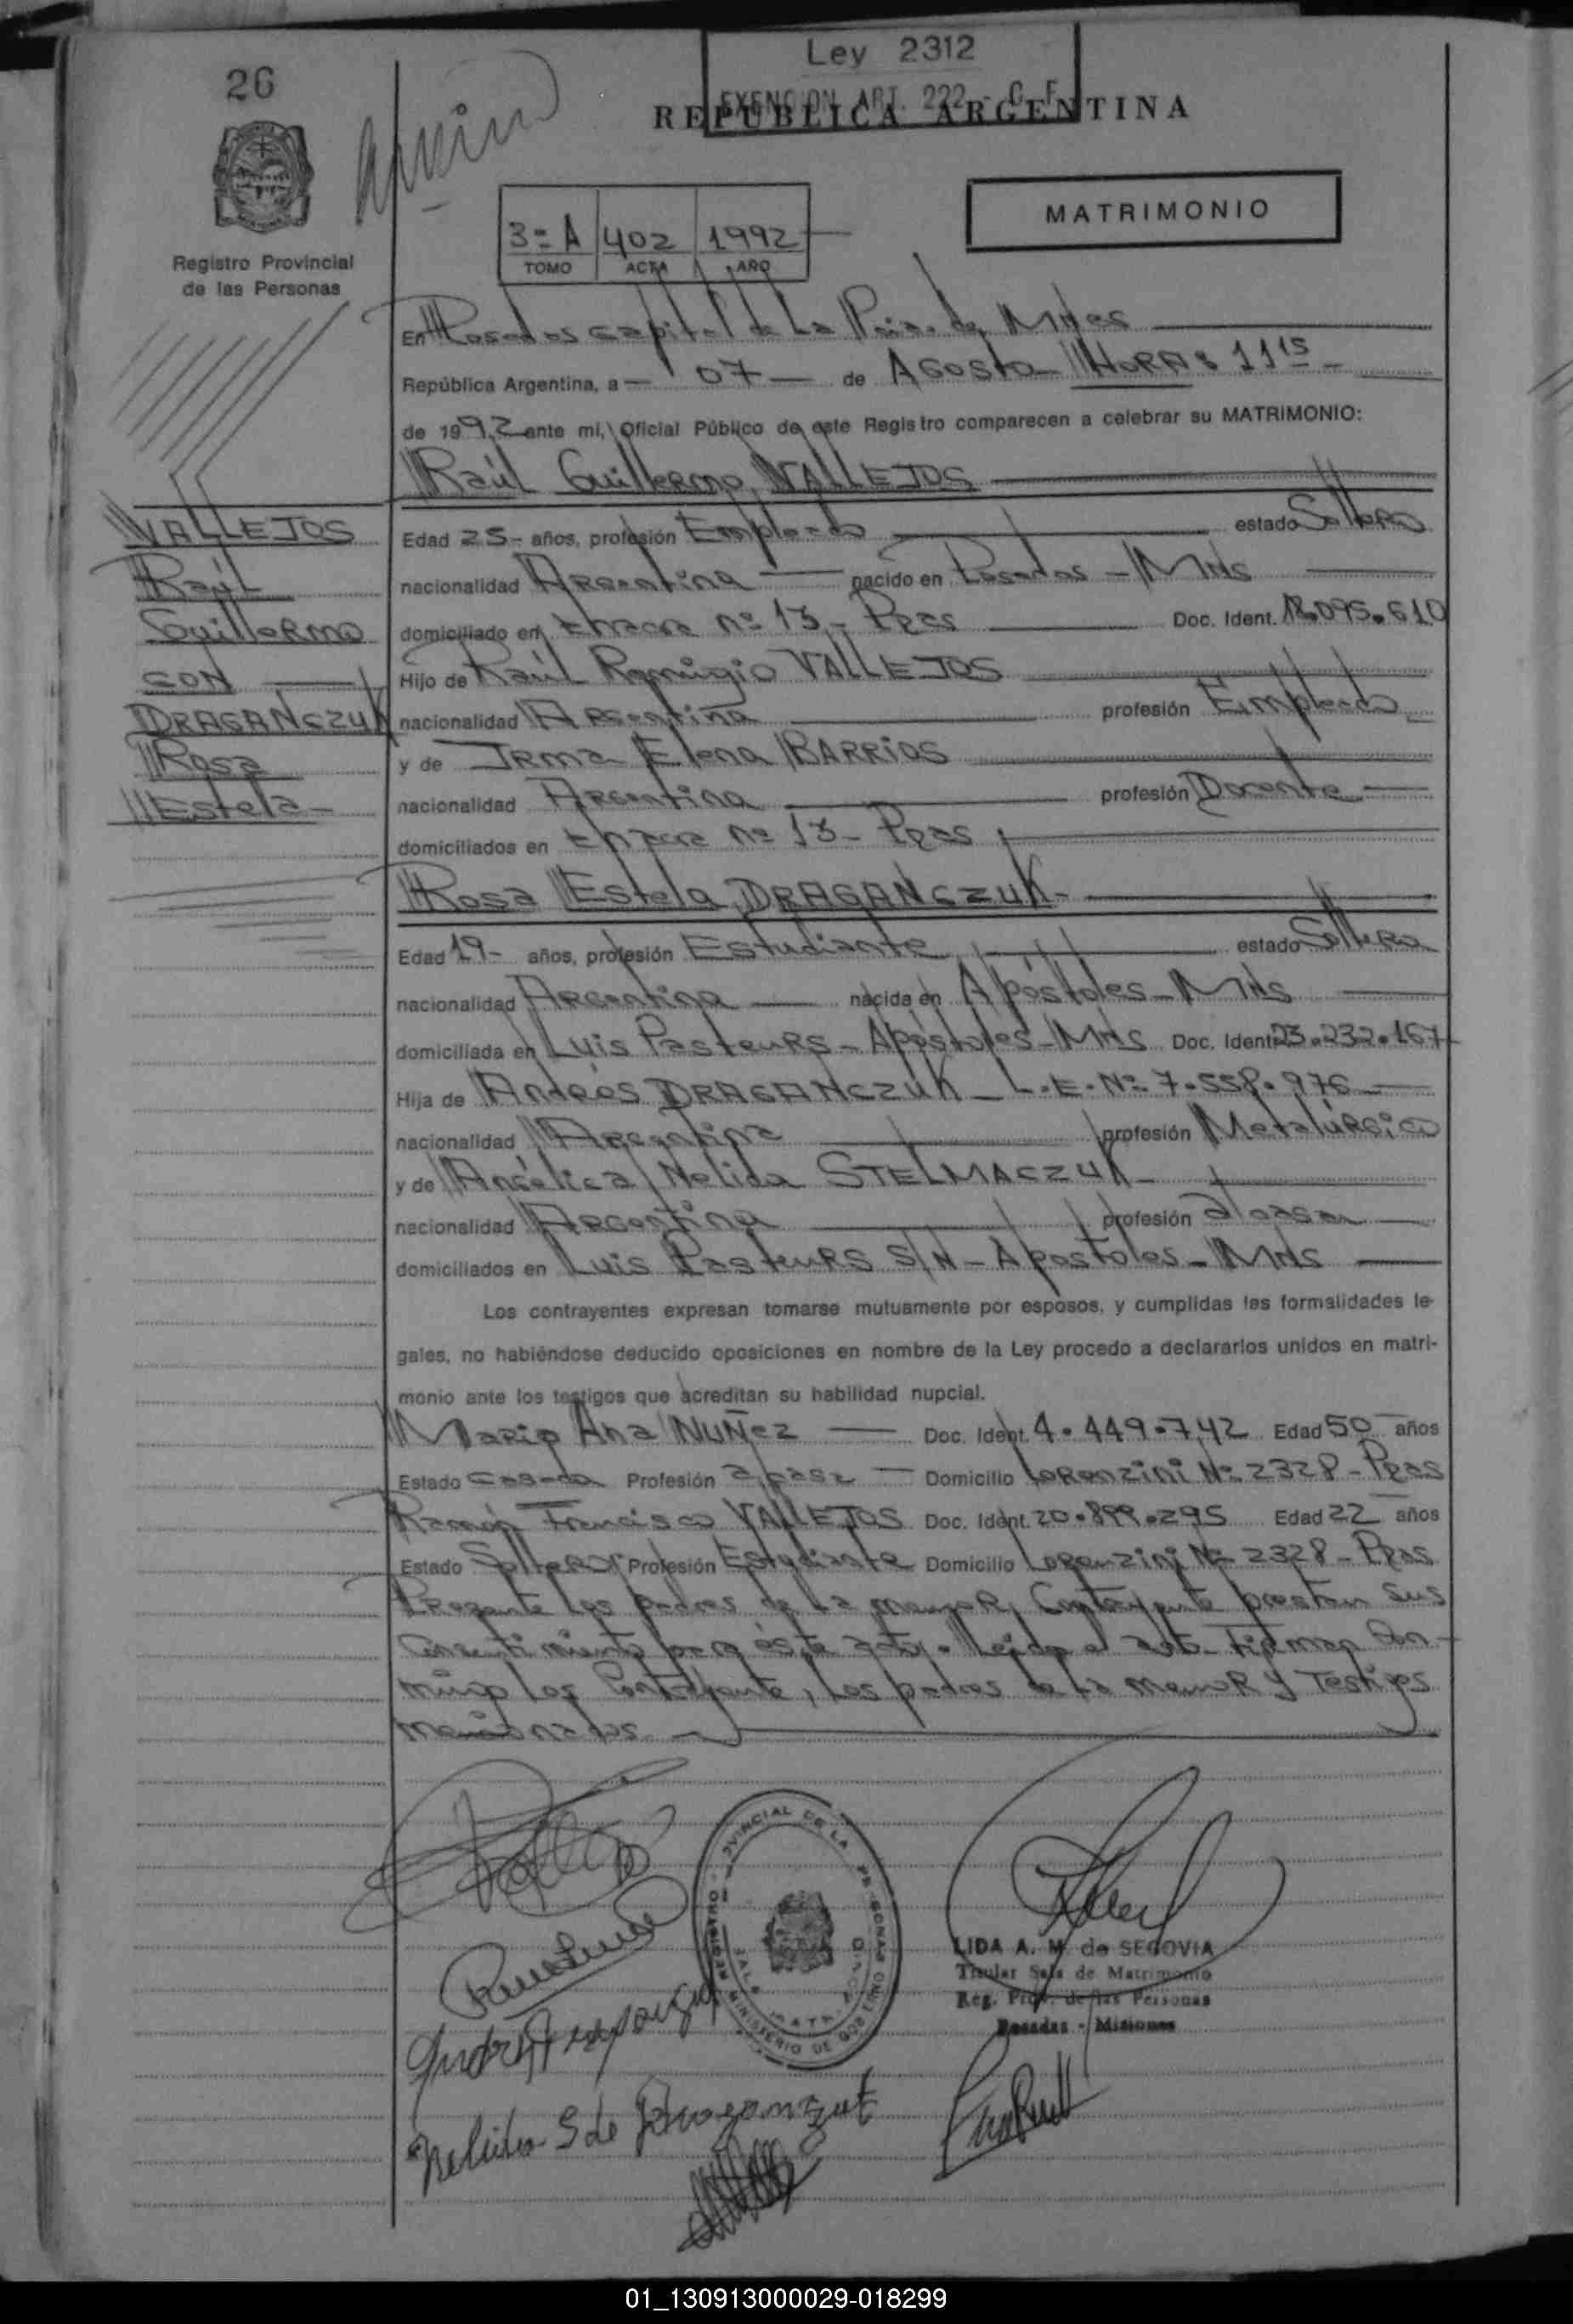 26
Ley 2312
EXENCION ART. 222 - C. F.
REPUBLICA ARGENTINA
Registro Provincial
de las Personas
3=A 402 1992
TOMO ACTA AÑO
MATRIMONIO
En Posadas capital de La Pcia. de Mnes
República Argentina, a 07 de Agosto HORAS 11 15
de 1992 ante mi, Oficial Público de este Registro comparecen a celebrar su MATRIMONIO:
Raúl Guillermo VALLEJOS
VALLEJOS
Raúl
Guillermo
CON
DRAGANCZUK
Rosa
Estela
Edad 25 años, profesión Empleado estado Soltero
nacionalidad Argentina nacido en Posadas - Mns
domiciliado en Chacra nº 13 - Pdas Doc. Ident. 18.095.610
Hijo de Raúl Remigio VALLEJOS
nacionalidad Argentina profesión Empleado
y de Irma Elena BARRIOS
nacionalidad Argentina profesión Docente
domiciliados en Chacra nº 13 - Pdas
Rosa Estela DRAGANCZUK
Edad 19 años, profesión Estudiante estado Soltera
nacionalidad Argentina nacida en Apóstoles - Mns
domiciliada en Luis Pasteurs - Apóstoles - Mns Doc. Ident. 23.232.167
Hija de Andrés DRAGANCZUK - L.E. Nº 7.558.976
nacionalidad Argentina profesión Metalúrgico
y de Angélica Nelida STELMACZUK
nacionalidad Argentina profesión
domiciliados en Luis Pasteurs S/N - Apostoles - Mns
Los contrayentes expresan tomarse mutuamente por esposos, y cumplidas las formalidades le-
gales, no habiéndose deducido oposiciones en nombre de la Ley procedo a declararlos unidos en matri-
monio ante los testigos que acreditan su habilidad nupcial.
Ana NUÑEZ Doc. Ident. 4.449.742 Edad 50 años
Estado Casada Profesión Domicilio Lorenzini Nº 2328 - Pdas
Ramón Francisco VALLEJOS Doc. Ident. 20.899.295 Edad 22 años
Estado Soltero Profesión Estudiante Domicilio Lorenzini Nº 2328 - Pdas
Presente los padres de la menor Contrayente prestan sus
Consentimiento para éste acto. Leida el acta Firman Con-
migo los Contrayente, los padres de la menor y Testigos
mencionados
LIDA A. M. de SEGOVIA
Titular Sala de Matrimonio
Reg. Prov. de las Personas
Posadas - Misiones
Nelida S de Draganczuk
01_130913000029-018299